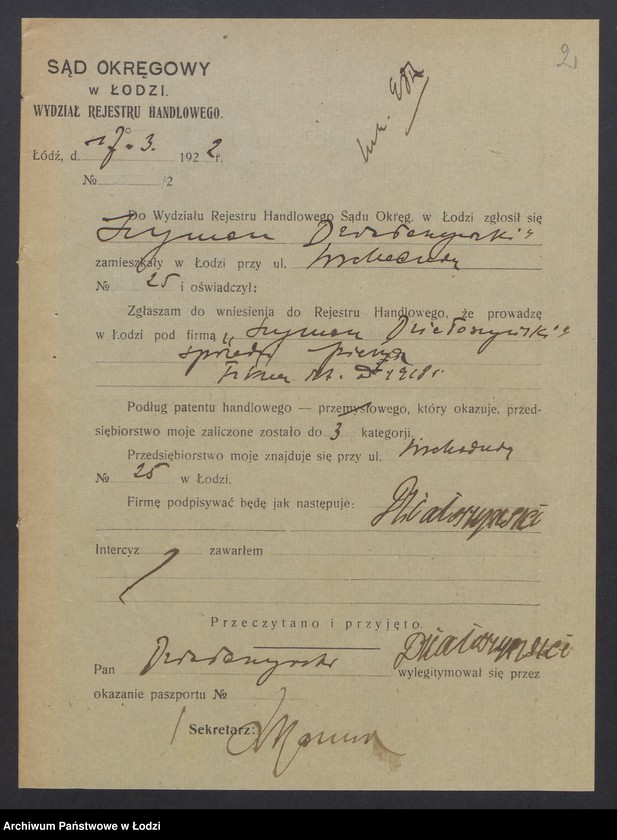 2
SĄD OKRĘGOWY
w ŁODZI.
WYDZIAŁ REJESTRU HANDLOWEGO.
Łódź, d. 17. 3. 1922r.
№ /2
Do Wydziału Rejestru Handlowego Sądu Okręg. w Łodzi zgłosił się
Szymon
zamieszkały w Łodzi przy ul. Wschodniej
№ 25 i oświadczył:
Zgłaszam do wniesienia do Rejestru Handlowego, że prowadzę
w Łodzi pod firmą „Szymon
sprzedaż pierza
1918r.
Podług patentu handlowego — przemysłowego, który okazuje, przed-
siębiorstwo moje zaliczone zostało do 3 kategorji.
Przedsiębiorstwo moje znajduje się przy ul. Wschodniej
№ 25 w Łodzi.
Firmę podpisywać będę jak następuje:
Intercyz zawarłem
Przeczytano i przyjęto.
Pan wylegitymował się przez
okazanie paszportu №
Sekretarz:
Archiwum Państwowe w Łodzi